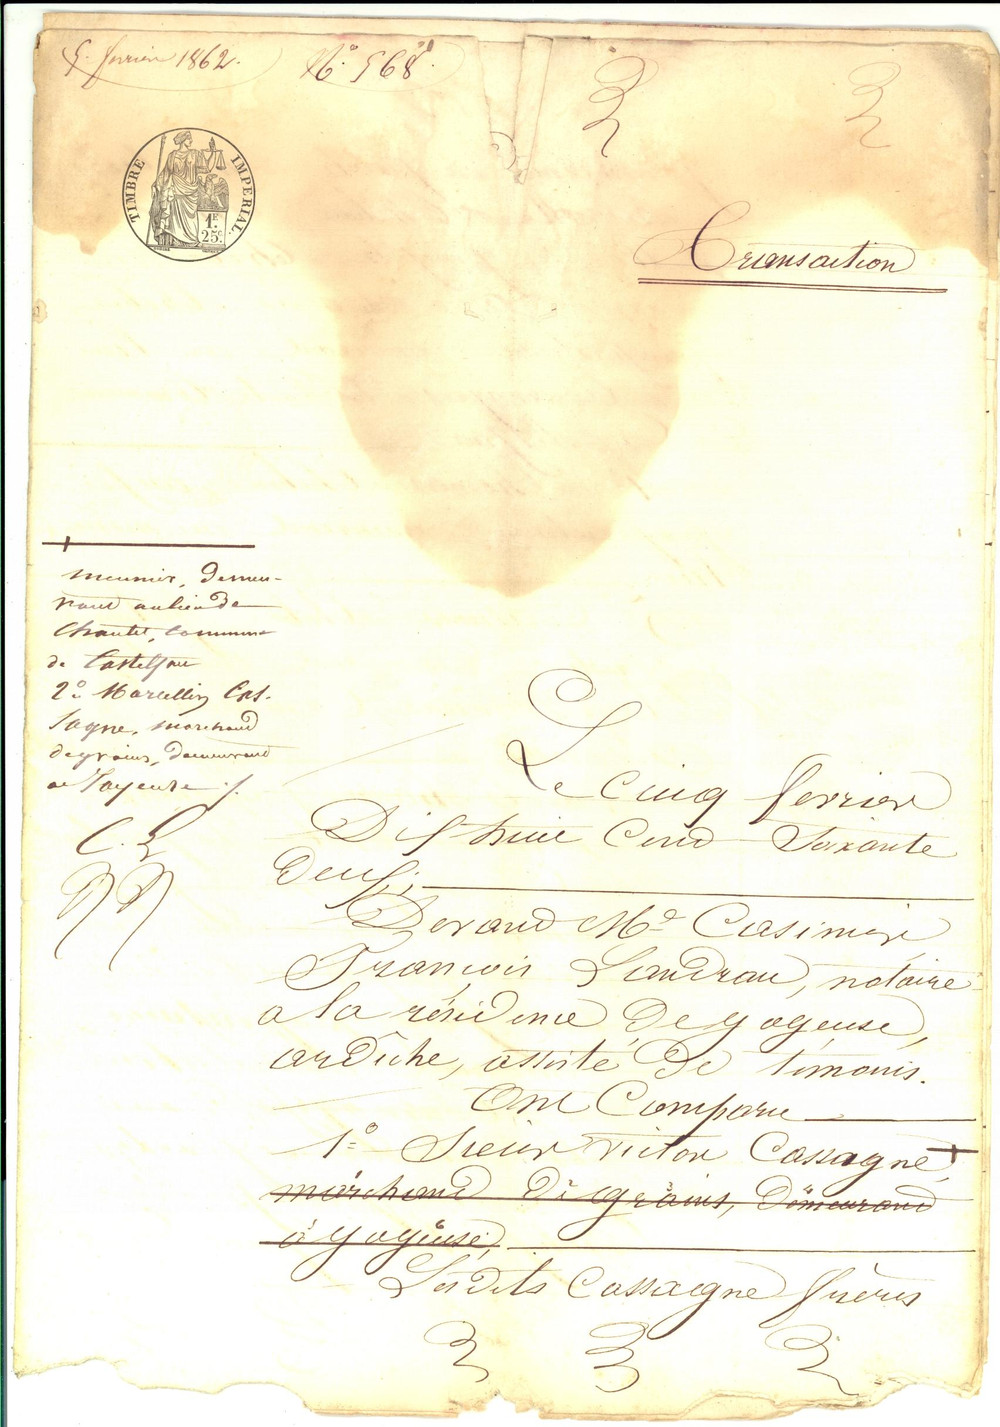 5. fevrier 1862. N.° 568.
TIMBRE IMPERIAL.
1F.
25c.
Transaction
meunier, demeu-
rant au lieu de
Chaulet, commune
de Casteljau
2.° Marcellin Cas-
sagne, marchand
de grains, demeurant
à Joyeuse ./.
C. L
Le cinq fevrier
Dix huit Cent Soixante
deux;
Devant Me. Casimir
François Landrau, notaire
à la résidence de Joyeuse,
ardèche, assisté de témoins.
Ont Comparu
1.° Sieur victor Cassagne,
marchand de grains, demeurant
à Joyeuse,
Lesdits Cassagne frères